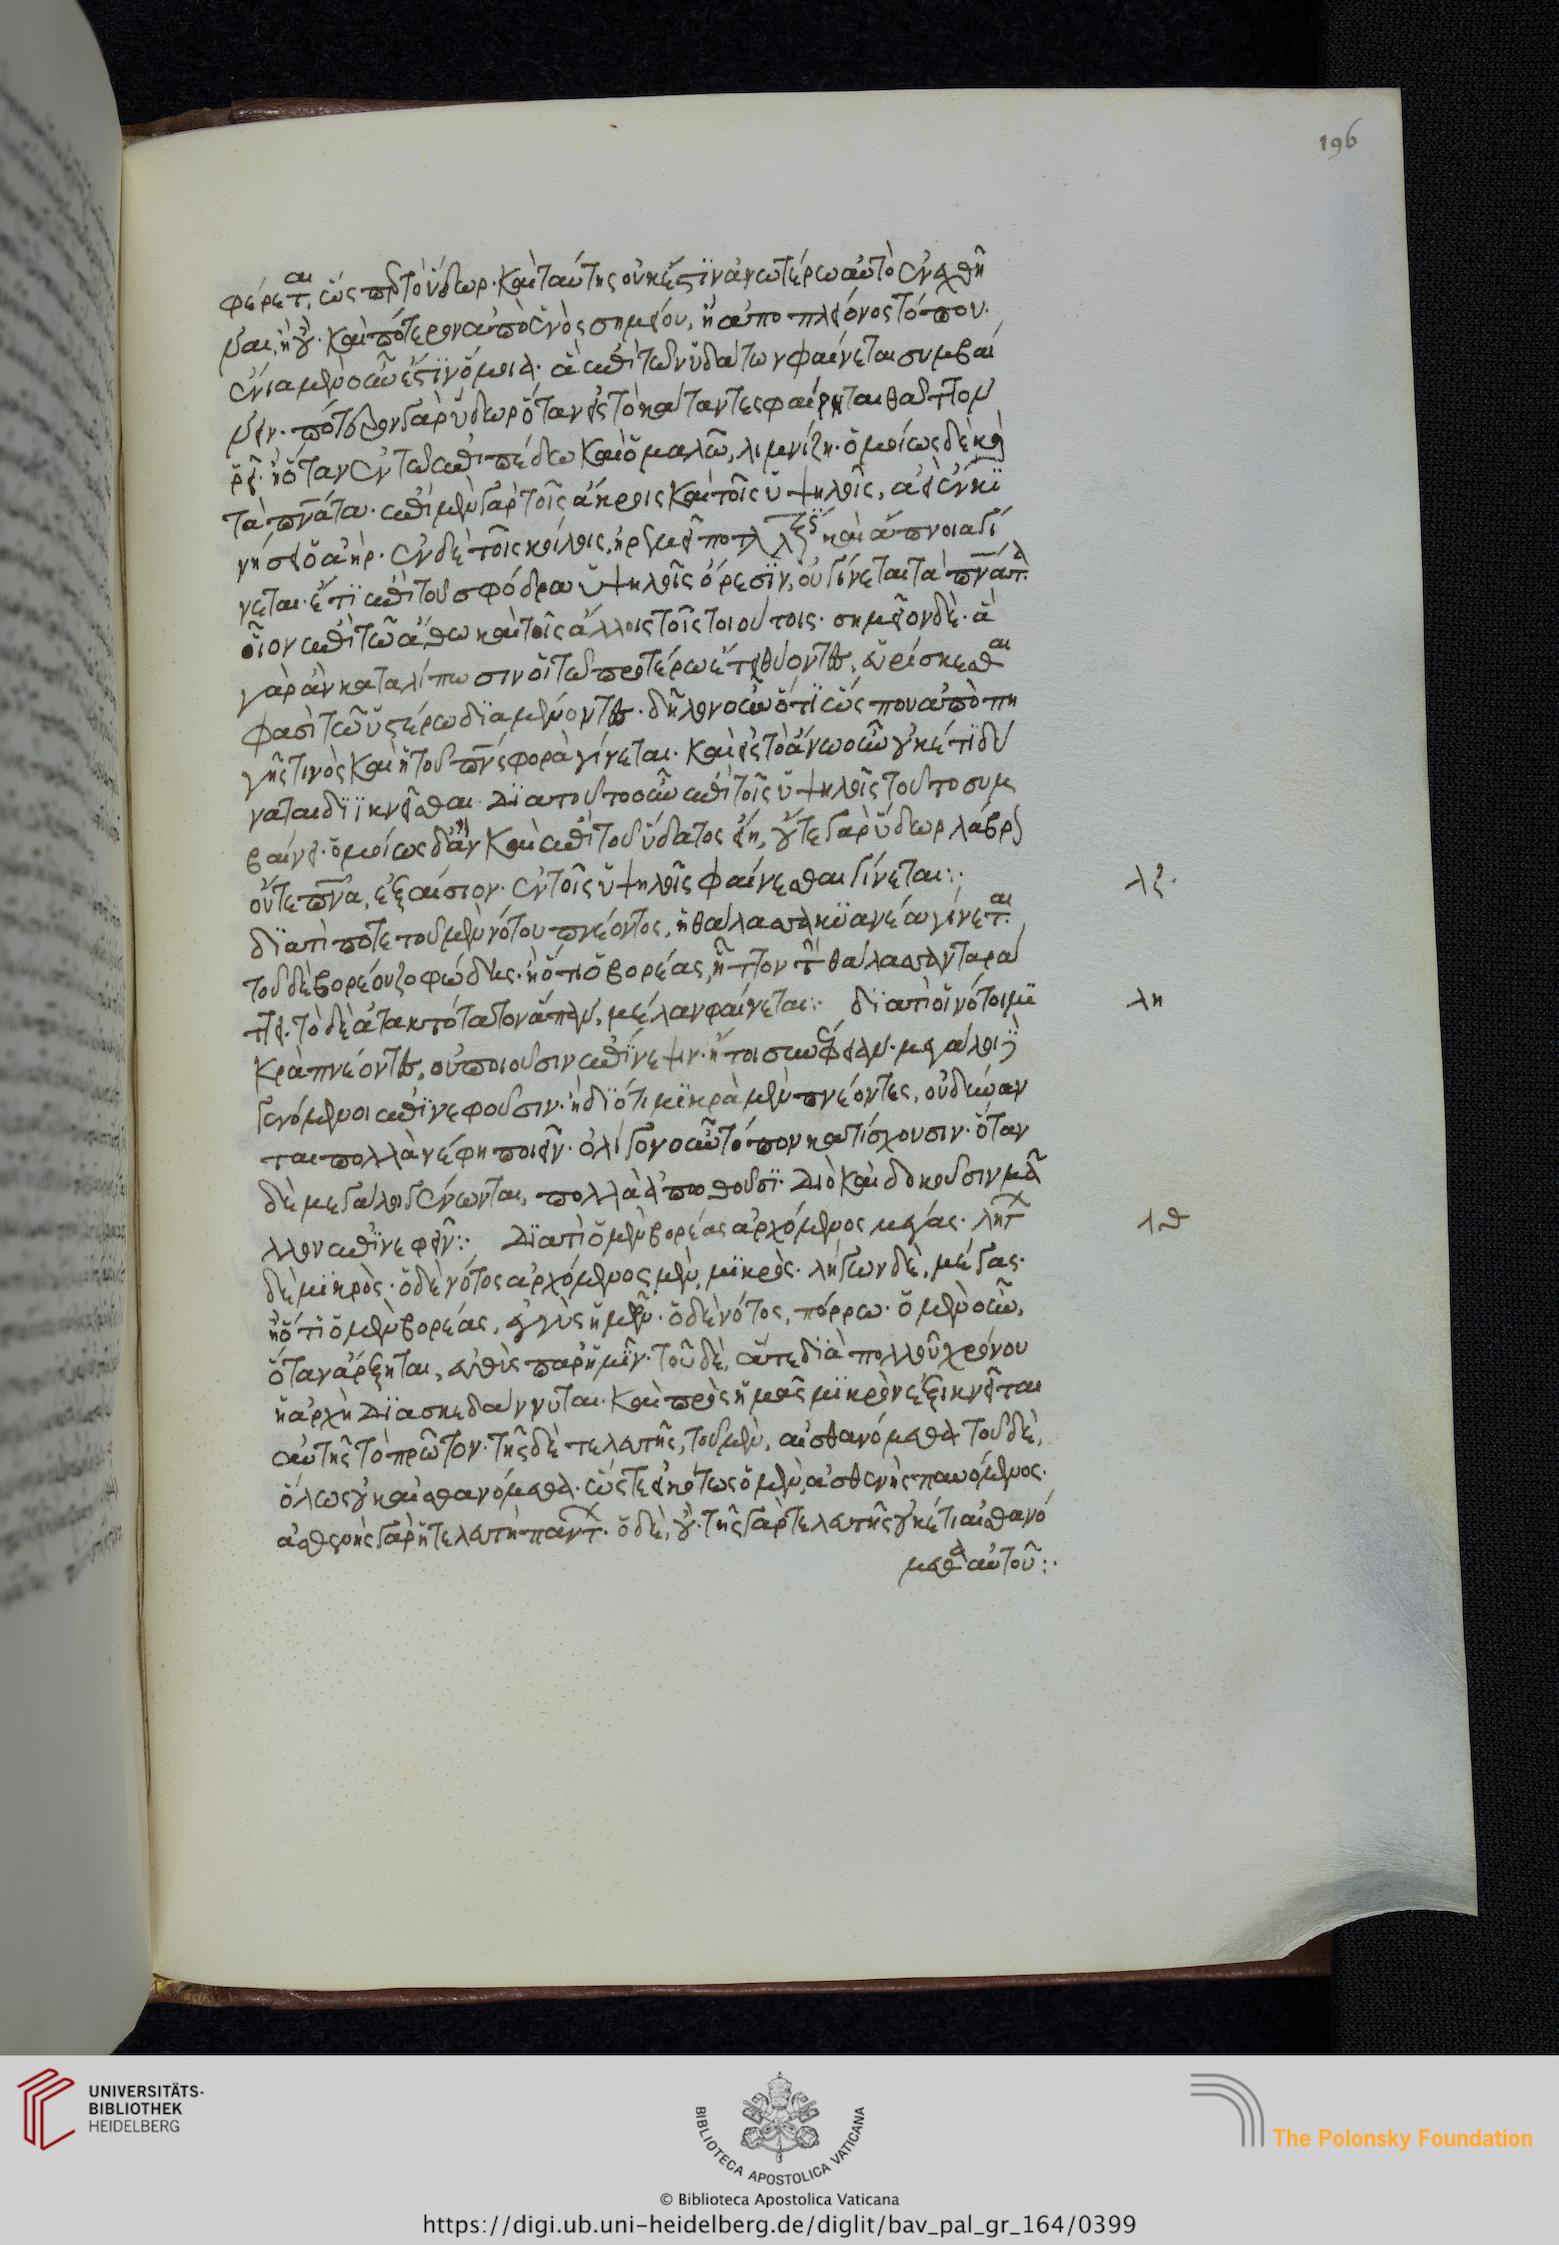 196
φέρεται, ὥσπερ τὸ ὕδωρ· καὶ ταύτης οὐκ ἔστιν ἀνωτέρω αὐτὸ ἐνεχθῆ
ναι, ἢ οὔ· καὶ πότερον ἀπὸ ἑνὸς σημείου, ἢ ἀπο πλείονος τόπου·
ἔνια μὲν οὖν ἐστὶν ὅμοια· ἃ ἐπὶ τῶν ὑδάτων φαίνεται συμβαί
νειν· πότερον γὰρ ὕδωρ ὅταν εἰς τὸ κάταντες φαίνηται θᾶττον
ῥεῖ· ἢ ὅταν ἐν τῶ ἐπιπέδω καὶ ὁμαλῶ, λιμνάζη· ὁμοίως δὲ καὶ
τὰ πνεύματα· ἐπὶ μὲν γὰρ τοῖς ἄκροις καὶ τοῖς ὑψηλοῖς, ἀεὶ ἐν κι
νήσει ὁ ἀήρ· ἐν δὲ τοῖς κοίλοις, ἠρεμεῖ πολλάκις καὶ ἄπνοια γί
νεται· ἔτι ἐπὶ τοῦ σφόδρα ὑψηλοῖς ὄρεσιν, οὐ γίνεται τὰ πνεύματα
οἷον ἐπὶ τῶ ἄθω καὶ τοῖς ἄλλοις τοῖς τοιούτοις· σημεῖον δὲ· ἃ
γὰρ ἂν καταλίπωσιν οἱ τῶ προτέρω ἔτει θύοντες, εὑρίσκεσθαι
φασὶ τῶ ὑστέρω διαμένοντα· δῆλον οὖν ὅτι ὥσπερ ἀπὸ πη
γῆς τινὸς καὶ ἡ τοῦ πνεύματος φορὰ γίνεται· καὶ εἰς τὸ ἄνω οὖν οὐκέτι δύ
ναται διϊκνεῖσθαι. διὰ τοῦτο οὖν ἐπὶ τοῖς ὑψηλοῖς τοῦτο συμ
βαίνει· ὁμοίως δ᾽ ἂν καὶ ἐπὶ τοῦ ὕδατος εἴη, οὔτε γὰρ ὕδωρ λάβρον
οὔτε πνεῦμα, ἐξαίσιον· ἐν τοῖς ὑψηλοῖς φαίνεσθαι γίνεται:·
λζ·
διατί ποτε τοῦ μὲν νότου πνέοντος, ἡ θάλασσα κυανέα γίνεται
τοῦ δὲ βορέου ζοφώδης· ἢ ὅτι ὁ βορέας, ἧττον τὴν θάλασσαν ταρά
ττει. τὸ δὲ ἀτακτότατον ἅπαν, μέλαν φαίνεται:· διατί οἱ νότοι μι
λη
κρὰ πνέοντες, οὐ ποιοῦσιν ἐπίνεψιν· μεγάλοι
γενόμενοι ἐπινεφοῦσιν· ἢ διότι μικρὰ μὲν πνέοντες, οὐ δύναν
ται πολλὰ νέφη ποιεῖν· ὀλίγον οὖν τόπον κατίσχουσιν· ὅταν
δὲ μεγάλοι γένωνται, πολλὰ ἀπωθοῦσι· διὸ καὶ δοκοῦσιν μᾶ
λλον ἐπινεφεῖν:· διατί ὁ μὲν βορέας ἀρχόμενος μέγας· λήγων
λθ
δὲ μικρὸς· ὁ δὲ νότος ἀρχόμενος μὲν, μικρὸς· λήγων δὲ, μέγας·
ἢ ὅτι ὁ μὲν βορέας, ἐγγὺς ἡμῶν· ὁ δὲ νότος, πόρρω· ὁ μὲν οὖν,
ὅταν ἄρξηται, εὐθὺς παρ᾽ ἡμῖν· τοῦ δὲ, ἅτε διὰ πολλοῦ χρόνου
ἡ ἀρχὴ διασκεδάννυται· καὶ πρὸς ἡμᾶς μικρὸν ἐξικνεῖται
αὐτῆς τὸ πρῶτον· τῆς δὲ τελευτῆς, τοῦ μὲν, αἰσθανόμεθα· τοῦ δὲ,
ὅλως οὐκ αἰσθανόμεθα· ὥστε εἰκότως ὁ μὲν, ἀσθενὴς παυόμενος·
ἀσθενὴς γὰρ ἡ τελευτὴ πάντων· ὁ δὲ, οὔ· τῆς γὰρ τελευτῆς οὐκέτι αἰσθανό
μεθα αὐτοῦ:·
UNIVERSITÄTS-
BIBLIOTHEK
HEIDELBERG
BIBLIOTECA APOSTOLICA VATICANA
The Polonsky Foundation
© Biblioteca Apostolica Vaticana
https://digi.ub.uni-heidelberg.de/diglit/bav_pal_gr_164/0399